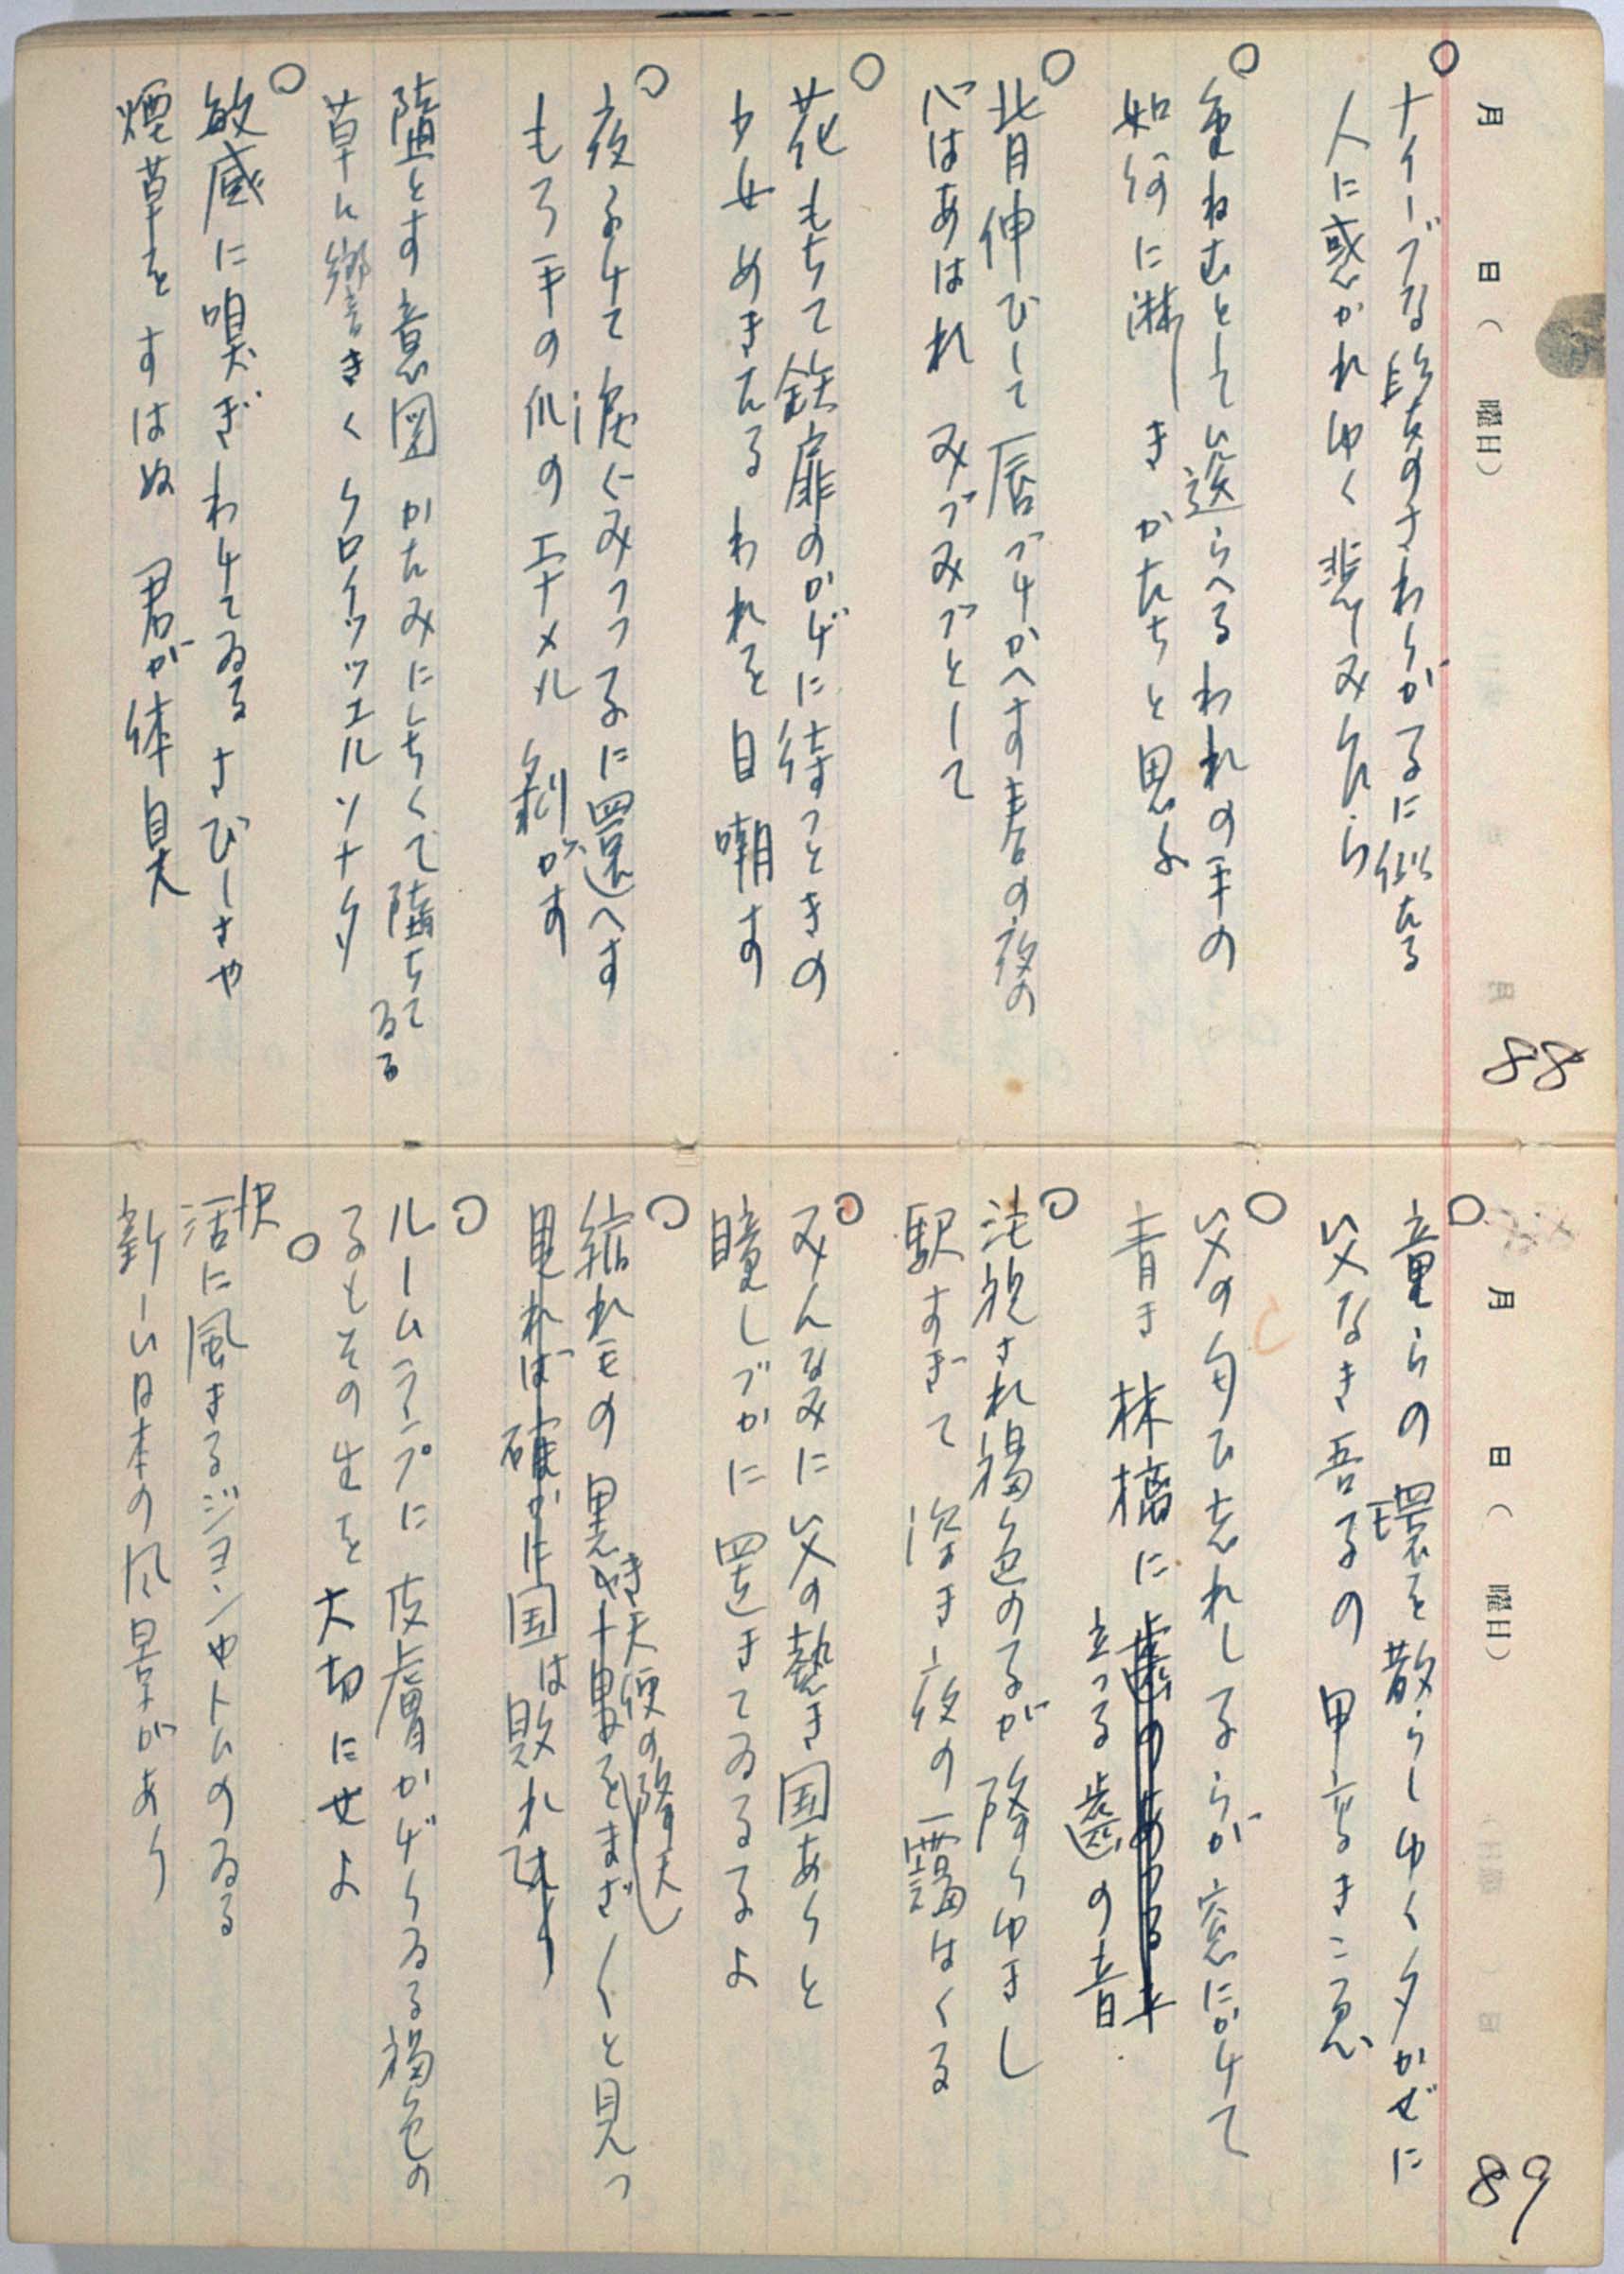 月 日( 曜日)
88
ナイーブな
人に惑かれゆく悲しみならら
重ねむとしてい逡らへるわれの手の
如何に淋しきかたちと思ふ
背伸びして唇づけかへす春の夜の
心はあはれみづみづとして
花もちて鉄扉のかげに待つときの
少女めきたるわれを自嘲す
夜ふけて涙ぐみつつふに還へす
もろ手の爪のエナメル剥がす
陥とす意図かたみにもちて陥ちてゐる
草に響きくクロイツッエルソナタ
敏感に嗅ぎわけてゐるさびしさや
煙草をすはぬ君が体臭
月 日( 曜日)
89
童らの環を散らしゆく夕かぜに
父なき吾子の甲高きこゑ
父の匂ひ忘れしるらが窓にかけて
青き林檎に立つる歯の音
注視され褐色の子が降りゆきし
駅すぎて深き夜の靄はくる
みんなみに父の勢き国ありと
瞳しづかに置きてゐる子よ
縮れ毛の黒き天使の降天しまざまざと見つ
見れば確かに国は敗れ
ルームランプに皮膚かげりゐる褐色の
子もその生を大切にせよ
快活に風きるジヨンやトムのゐる
新しい日本の風景があり